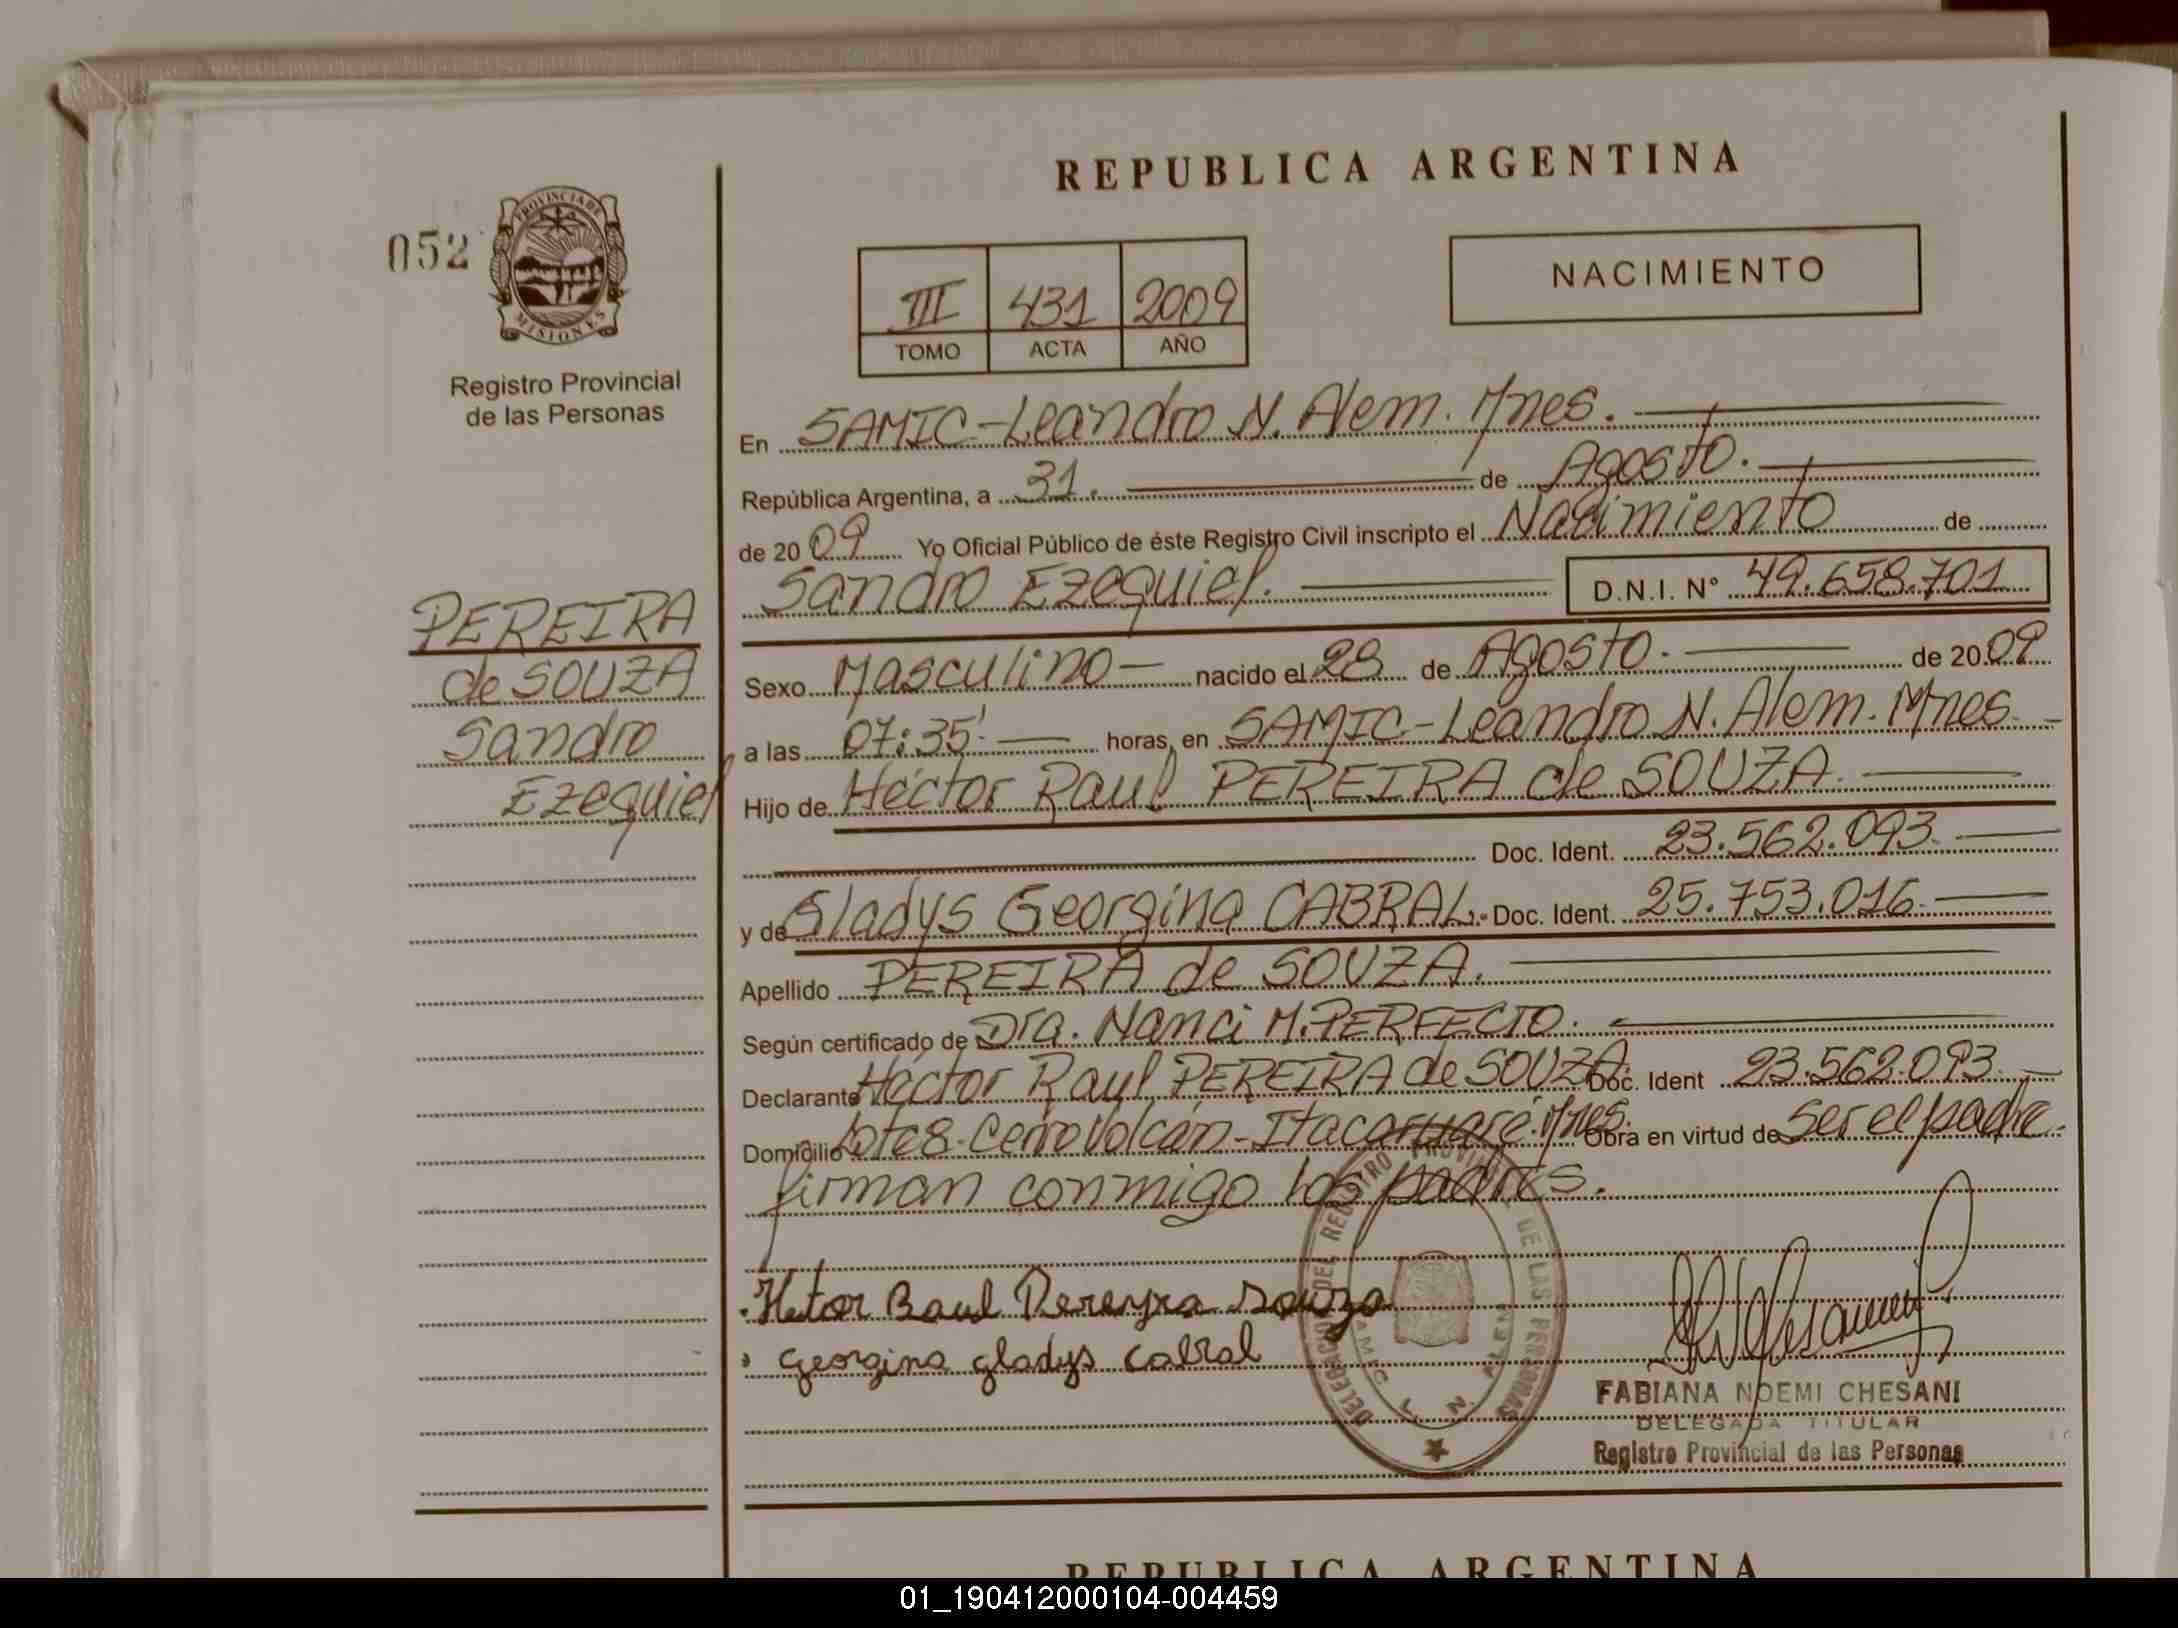 REPUBLICA ARGENTINA
052
PROVINCIA DE
MISIONES
Registro Provincial
de las Personas
III 431 2009
TOMO ACTA AÑO
NACIMIENTO
En SAMIC-Leandro N. Alem. Mnes.
República Argentina, a 31. de Agosto.
de 20 09 Yo Oficial Público de éste Registro Civil inscripto el Nacimiento de
Sandro Ezequiel. D.N.I. N° 49.658.701
PEREIRA
de SOUZA
Sandro
Ezequiel
Sexo Masculino nacido el 28 de Agosto. de 20 09
a las 07:35' horas, en SAMIC-Leandro N. Alem. Mnes.
Hijo de Héctor Raul PEREIRA de SOUZA.
Doc. Ident. 23.562.093.
y de Gladys Georgina CABRAL. Doc. Ident. 25.753.016.
Apellido PEREIRA de SOUZA.
Según certificado de Dra. Nanci M. PERFECTO.
Declarante Héctor Raul PEREIRA de SOUZA. Doc. Ident 23.562.093.
Domicilio Lote 8. Cerro Volcán-Itacaruaré. Mnes. Obra en virtud de ser el padre.
firman conmigo los padres.
Hetor Raul Pereyra Souza
Georgina gladys Cabral
DELEGACION DEL REGISTRO PROVINCIAL DE LAS PERSONAS
SAMIC L. N. ALEM
FABIANA NOEMI CHESANI
DELEGADA TITULAR
Registro Provincial de las Personas
REPUBLICA ARGENTINA
01_190412000104-004459